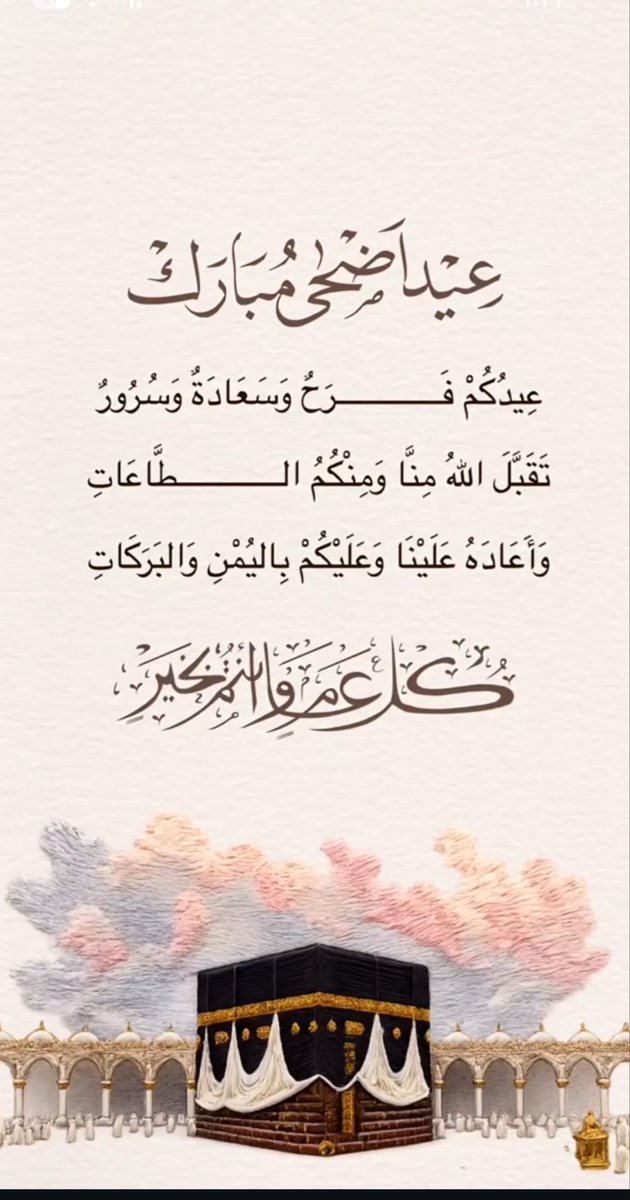 عِيْد اَضْحٰى مُبَارَكْ
عِيدُكُمْ فَـــــــــرَحٌ وَسَعَادَةٌ وَسُرُورٌ
تَقَبَّلَ اللهُ مِنَّا وَمِنْكُمُ الـــــــــطَّاعَاتِ
وَأَعَادَهُ عَلَيْنَا وَعَلَيْكُمْ بِاليُمْنِ وَالبَرَكَاتِ
كُل عَام وَأَنْتُمْ بِخَيْرٍ